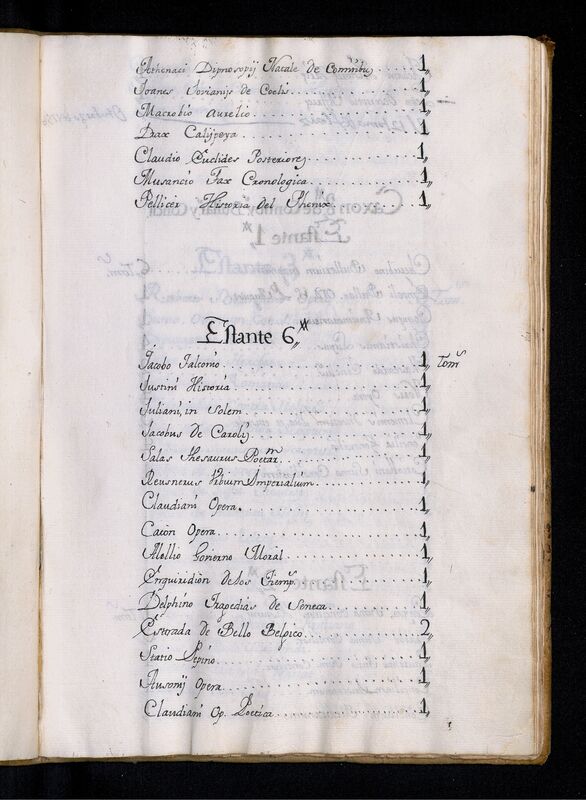 Athenaci Dipnosopij Natale de Comitibus 1
Ioanes Iovianijs de Coelis 1
Macrobio Aurelio 1
Dax Calijpeya 1
Claudio Euclides Posteriores 1
Musancio Fax Cronologica 1
Pellicer Historia del Phenix 1
Estante 6
Jacobo Falconio 1 Toms
Iustini Historia 1
Iuliani, in Solem 1
Jacobus de Carolis 1
Salas thesaurus Poetar. 1
Reusnerus Urbium Imperialium 1
Claudiani Opera 1
Opera 1
Govierno Moral 1
Enquiridion de los Tiemp. 1
Delphino Tragedias de Seneca 1
Estrada de Bello Belpico 2
Statio Pipino 1
Ausonij Opera 1
Claudiani Op. Poetica 1